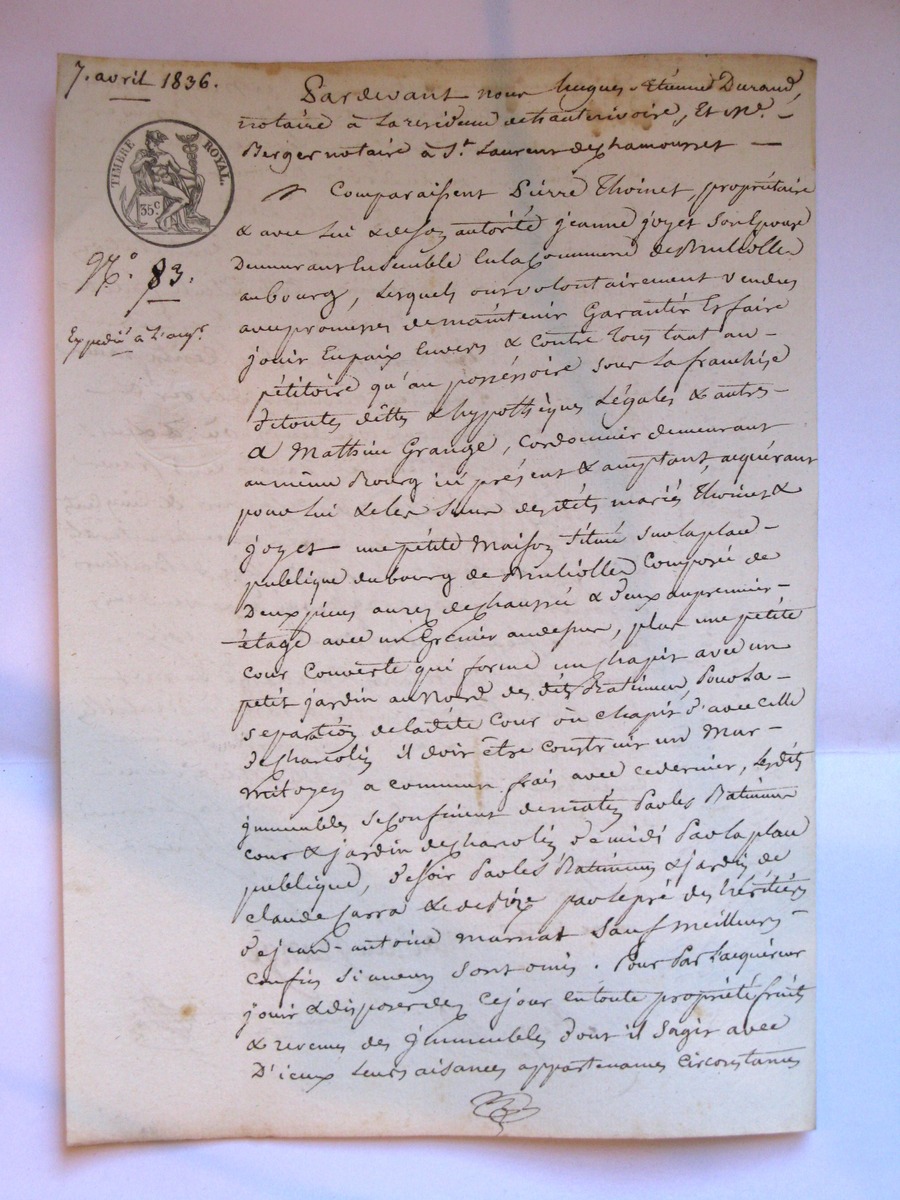 7. avril 1836.
TIMBRE ROYAL.
35c
N.° 83.
Expédié à l'acqr.
Pardevant nous hugues Etienne Durand,
notaire à La residence de hauterivoire, Et Me.
Berger notaire à St. Laurent de chamousset —
Comparaissent Pierre Thoinet, propriétaire
& avec Lui & de son autorité jeanne joyet son Epouse
Demeurant Ensemble En la Commune de Brulliolles
au bourg, Lesquels ont volontairement vendus
avec promesses de maintenir Garantir Et faire
jouir En paix Envers & contre Tous tant au -
pétitoire qu'au possessoire sous La franchise
de toutes dettes & hypothèques Légales & autres -
A Mathieu Grange, cordonnier demeurant
au même Bourg ici présent & acceptant, acquérant
pour Lui & Les Siens des dits mariés Thoinet &
joyet une petite Maison située sur la place -
publique du bourg de Brulliolles Composée de
Deux pièces au rez de chaussée & deux au premier -
étage avec un Grenier au dessus, plus une petite
cour Couverte qui forme un chapit avec un
petit jardin au Nord des dits Batimens Pour La -
séparation de la dite Cour ou chapit d'avec celle
de il doit être construit un Mur -
Mitoyen a commun frais avec ce dernier, Les dits
jmmeubles se confinent de matin Par les Batimens
cour & jardin de de midi Par la place
publique, de soir Par les Batimens & jardin de
claude & de bize par le pré des héritiers
de jean-antoine sauf meilleurs -
confins si aucun sont omis. Pour Par L'acquéreur
jouir & disposer dès ce jour en toute propriété fruits
& revenus des jmmeubles dont il s'agit avec
D'iceux Leurs aisances appartenances circonstances